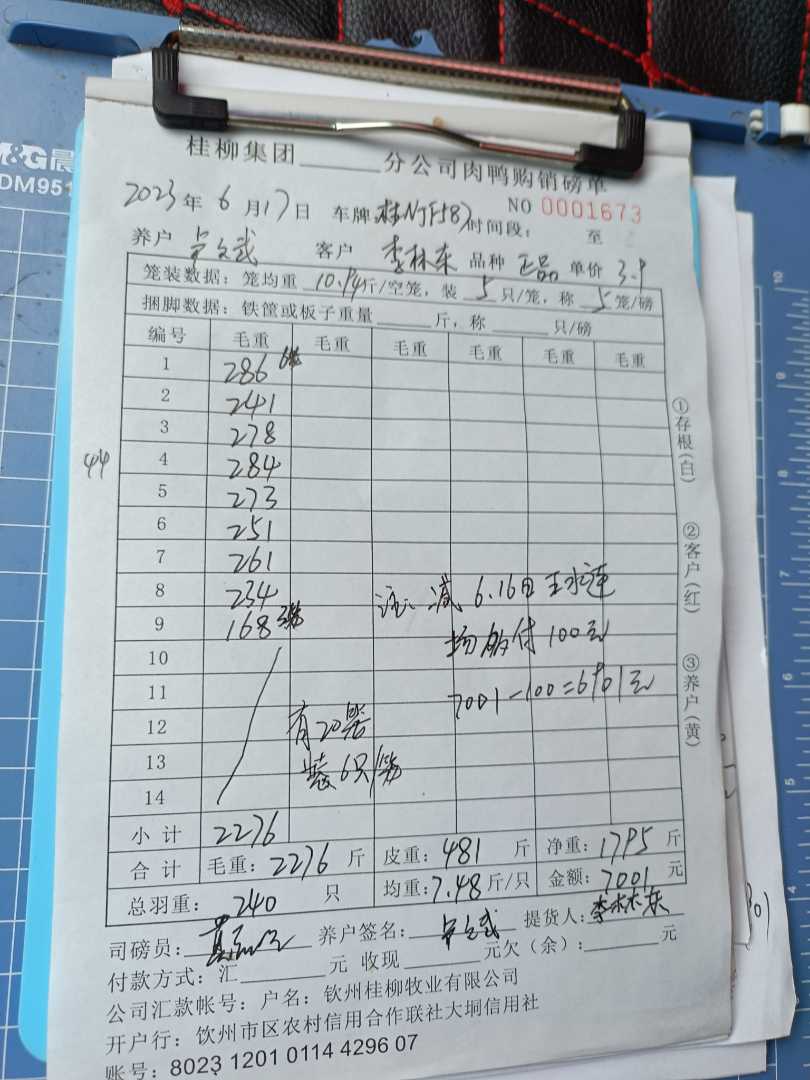 M&G晨
DM951
桂柳集团______分公司肉鸭购销磅单
NO 0001673
2023年 6月17日 车牌 时间段: 至
养户 客户 李林东 品种 正品 单价 3.9
笼装数据: 笼均重 10.94斤/空笼, 装 5 只/笼, 称 5 笼/磅
捆脚数据: 铁筐或板子重量______斤, 称______只/磅
编号 毛重 毛重 毛重 毛重 毛重 毛重
1 286 6笼
2 241
3 278
44
4 284
5 273
6 251
7 261
8 234
9 168
10
11
12
13
14
注: 减 6.16日王水莲
场 付100元
7001-100=6901元
有20笼
装6只/笼
小计 2276
合计 毛重: 2276 斤 皮重: 481 斤 净重: 1795 斤
总羽重: 240 只 均重: 7.48斤/只 金额: 7001 元
司磅员: 养户签名: 提货人: 李林东
付款方式: 汇______元 收现______元欠(余):______元
公司汇款帐号: 户名: 钦州桂柳牧业有限公司
开户行: 钦州市区农村信用合作联社大垌信用社
账号: 8023 1201 0114 4296 07
①存根(白)
②客户(红)
③养户(黄)
10
9
8
5
4